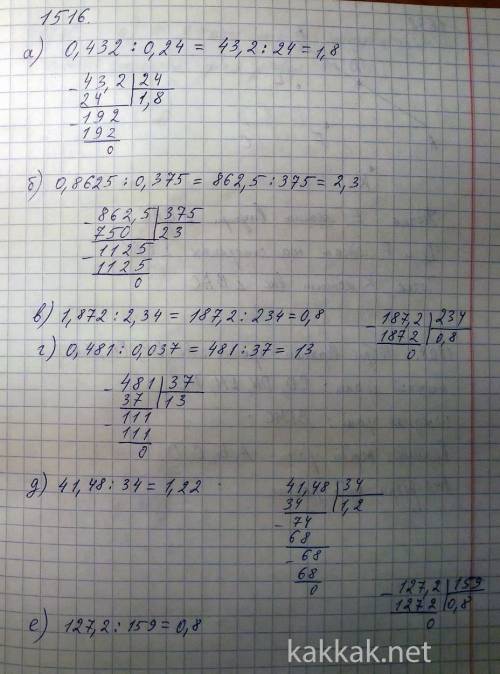 1516.
а) 0,432 : 0,24 = 43,2 : 24 = 1,8
- 43,2 | 24
24 | 1,8
- 192
192
0
б) 0,8625 : 0,375 = 862,5 : 375 = 2,3
- 862,5 | 375
750 | 23
- 1125
1125
0
в) 1,872 : 2,34 = 187,2 : 234 = 0,8
- 187,2 | 234
1872 | 0,8
0
г) 0,481 : 0,037 = 481 : 37 = 13
- 481 | 37
37 | 13
- 111
111
0
д) 41,48 : 34 = 1,22
41,48 | 34
34 | 1,2
- 74
68
- 68
68
0
е) 127,2 : 159 = 0,8
- 127,2 | 159
1272 | 0,8
0
kakkak.net